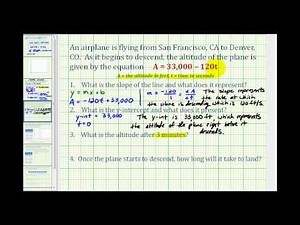 An airplane is flying from San Francisco, CA to Denver,
CO. As it begins to descend, the altitude of the plane is
given by the equation A = 33,000 – 120t
A = the altitude in feet, t = time in seconds
1. What is the slope of the line and what does it represent?
y = mx + b
m = -120/1 = ΔA/Δt
The slope represents
the rate at which
A = -120t + 33,000
the plane is descending which is 120 ft/s.
2. What is the y-intercept and what does it represent?
y-int = 33,000
The y-int is 33,000 ft, which represents
t = 0
the altitude of the plane right before it
descends.
3. What is the altitude after 3 minutes?
4. Once the plane starts to descend, how long will it take to land?